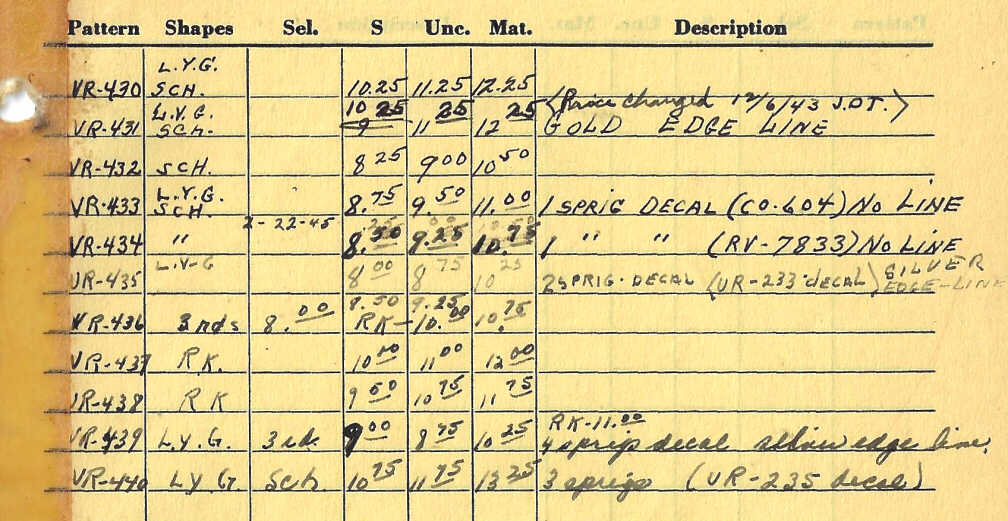 Pattern Shapes Sel. S Unc. Mat. Description
L.Y.G.
VR-430 SCH. 10.25 11.25 12.25
(Price changed 12/6/43 J.O.T.)
L.Y.G. 10 25 25 25
VR-431 SCH. 9 11 12 GOLD EDGE LINE
VR-432 SCH. 8 25 9 00 10 50
L.Y.G.
VR-433 SCH. 8.75 9.50 11.00 1 SPRIG DECAL (CO-604) NO LINE
2-22-45
VR-434 " 8.50 9.25 10.75 1 " " (RV-7833) NO LINE
L.Y-G SILVER
VR-435 8 00 8 75 10 25 2 SPRIG-DECAL (UR-233-decal) EDGE-LINE
8.50 9.25
VR-436 3 rds 8.00 RK-10.00 10.75
VR-437 R.K. 10 00 11 00 12 00
VR-438 RK 9 50 10 75 11 75
RK-11.00
VR-439 L.Y.G. 3 rd. 9 00 8 75 10 25 4 sprig decal edge line.
VR-440 LYG. Sch. 10 75 11 75 13 25 3 sprigs (VR-235 decal)